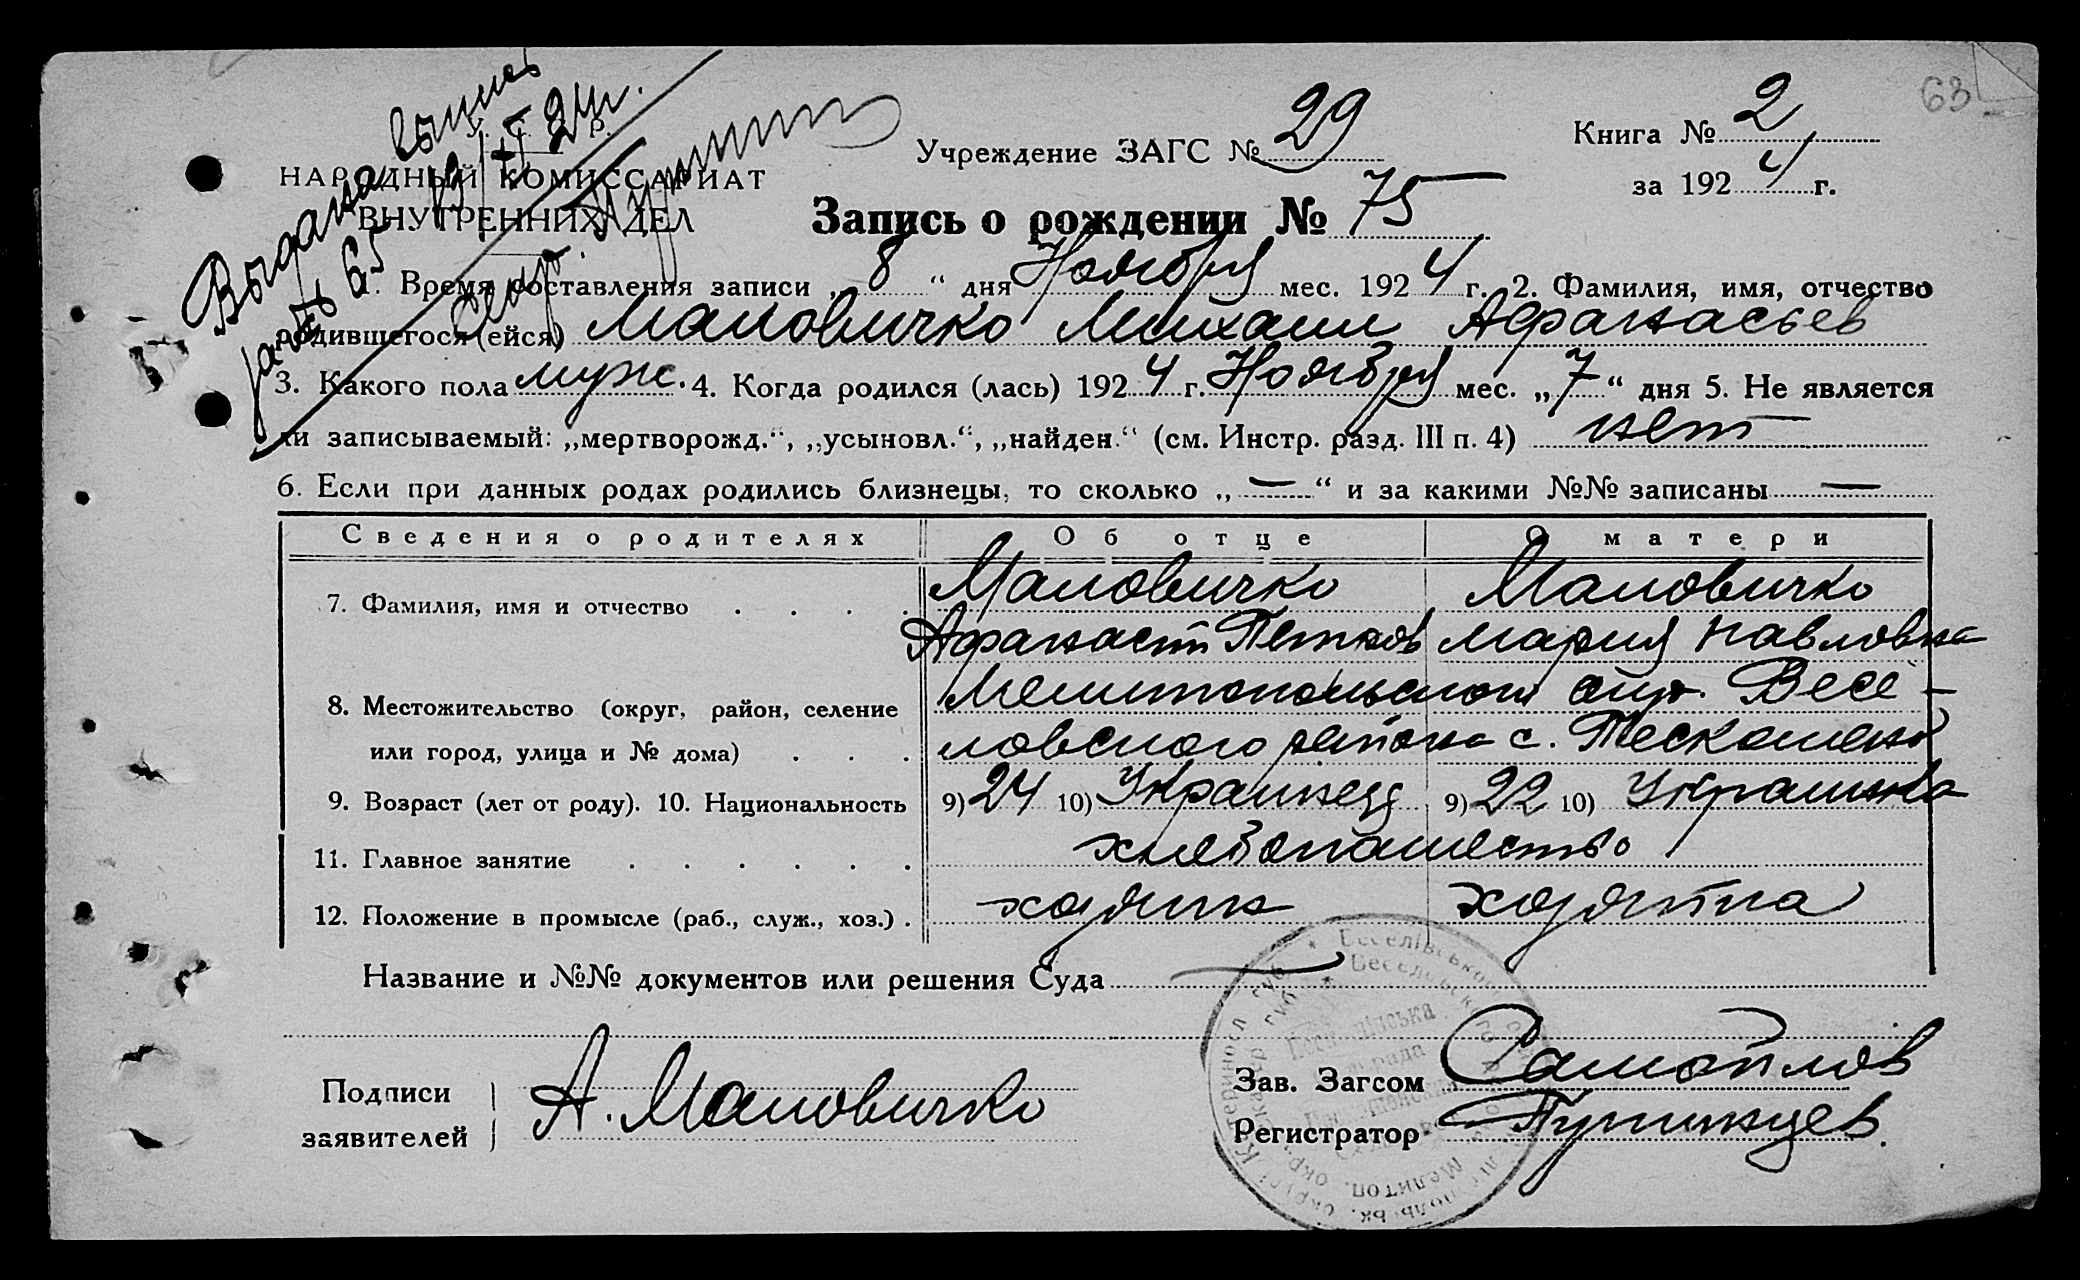 63
Выдана выпись
19/XI 24 г.
за № 65
Секр.
У. С. С. Р.
НАРОДНЫЙ КОМИССАРИАТ
ВНУТРЕННИХ ДЕЛ
Учреждение ЗАГС № 29
Книга № 2
за 1924 г.
Запись о рождении № 75
1. Время составления записи „8“ дня Ноября мес. 1924 г. 2. Фамилия, имя, отчество
родившегося (ейся) Маловичко Михаил Афанасьев
3. Какого пола муж. 4. Когда родился (лась) 1924 г. Ноября мес. „7“ дня 5. Не является
ли записываемый: „мертворожд.“, „усыновл.“, „найден.“ (см. Инстр. разд. III п. 4) нет
6. Если при данных родах родились близнецы, то сколько „—“ и за какими №№ записаны —
Сведения о родителях Об отце О матери
7. Фамилия, имя и отчество Маловичко Маловичко
Афанасий Петров Мария Павловна
8. Местожительство (округ, район, селение Мелитопольского окр. Весе-
или город, улица и № дома) ловского района с.
9. Возраст (лет от роду). 10. Национальность 9) 24 10) Украинец 9) 22 10) Украинка
11. Главное занятие хлебопашество
12. Положение в промысле (раб., служ., хоз.) хозяин хозяйка
Название и №№ документов или решения Суда —
Подписи
заявителей А. Маловичко
Зав. Загсом Самойлов
Регистратор Путинцев